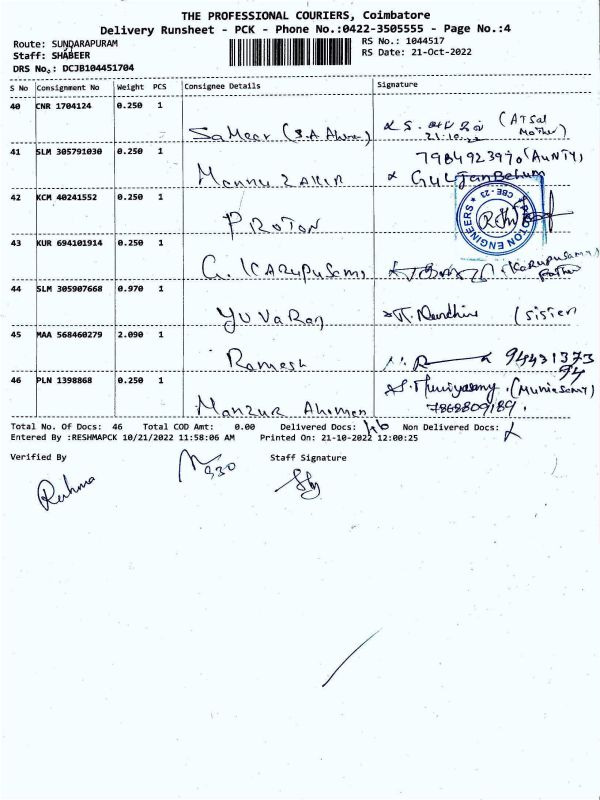 THE PROFESSIONAL COURIERS, Coimbatore
Delivery Runsheet - PCK - Phone No.:0422-3505555 - Page No.:4
Route: SUNDARAPURAM
Staff: SHABEER
DRS No.: DCJB104451704
RS No.: 1044517
RS Date: 21-Oct-2022
S No Consignment No Weight PCS Consignee Details Signature
40 CNR 1704124 0.250 1
Sameer (S.A (Afsal Mother)
41 SLM 305791030 0.250 1
7984923970 (AUNTY)
Mannu ZAKIR
42 KCM 40241552 0.250 1
PROTON
PROTON ENGINEERS CBE - 23
43 KUR 694101914 0.250 1
G. KARUPUSAMI (KARUPUSAMY Father
44 SLM 305907668 0.970 1
YUVARAJ Nandhini (sister
45 MAA 568460279 2.090 1
Ramesh 94431373
94
46 PLN 1398868 0.250 1
Manzur (Muniasamy)
7868809189.
Total No. Of Docs: 46 Total COD Amt: 0.00 Delivered Docs: 46 Non Delivered Docs:
Entered By :RESHMAPCK 10/21/2022 11:58:06 AM Printed On: 21-10-2022 12:00:25
Verified By Staff Signature
Reshma 930